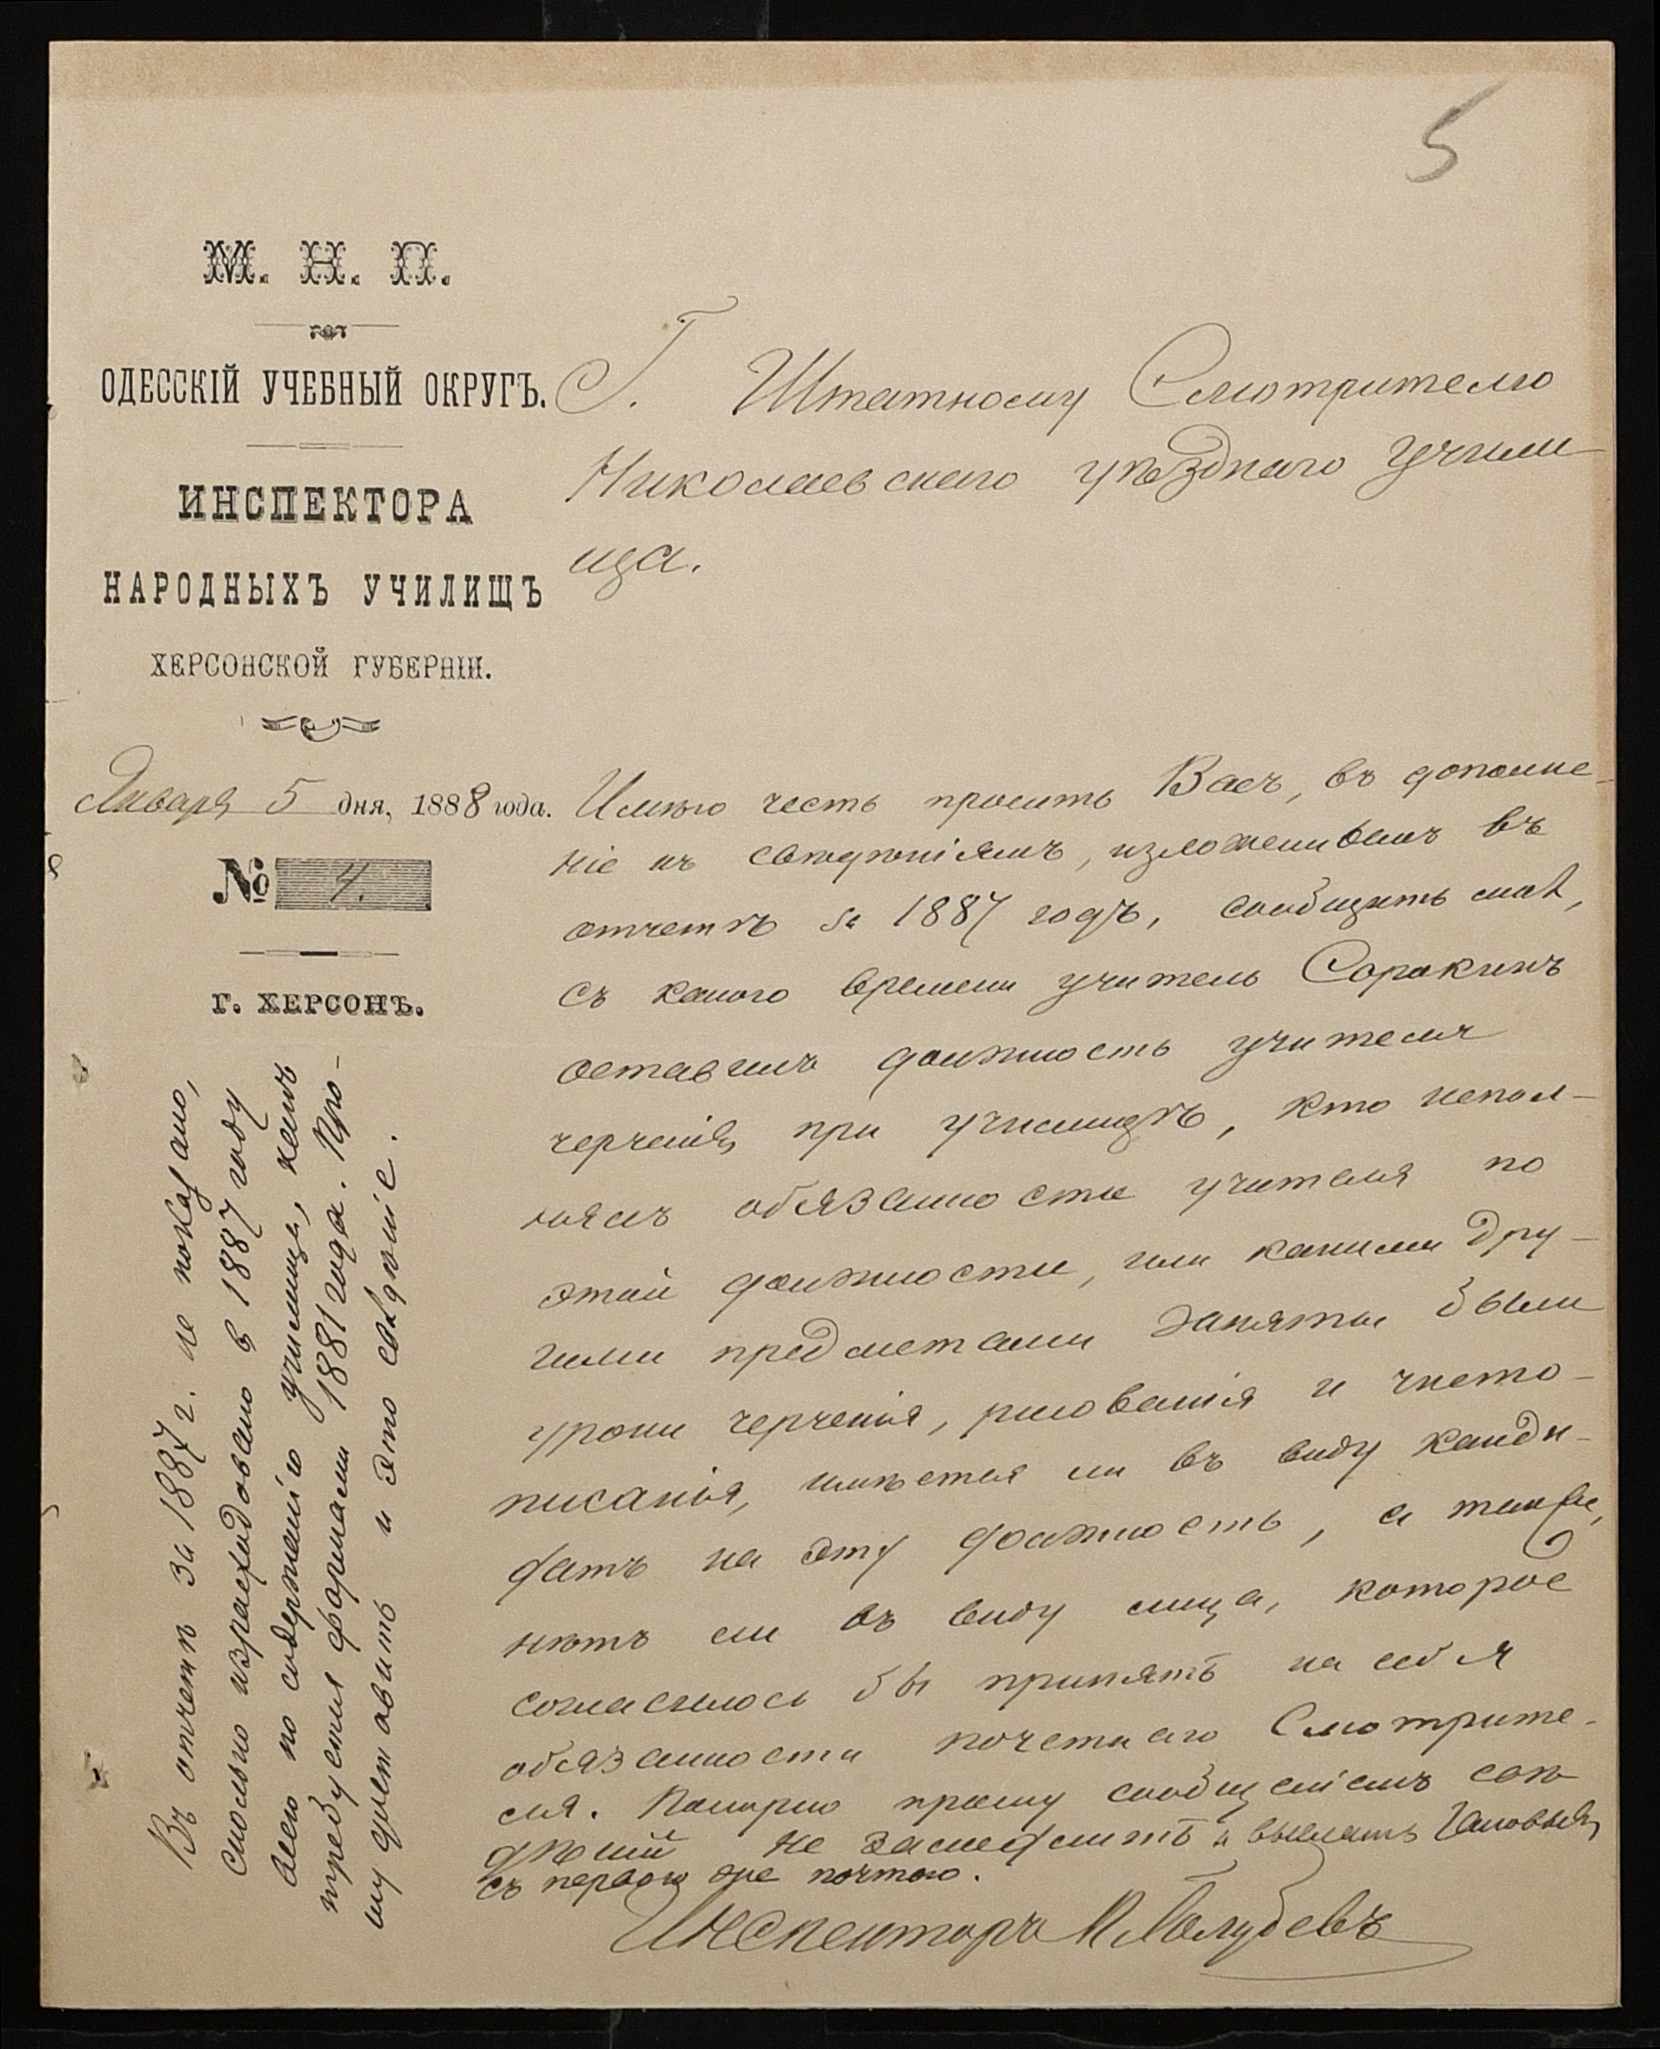 5
М. Н. П.
ОДЕССКІЙ УЧЕБНЫЙ ОКРУГЪ.
ИНСПЕКТОРА
НАРОДНЫХЪ УЧИЛИЩЪ
ХЕРСОНСКОЙ ГУБЕРНІИ.
Января 5 дня, 1888 года.
№ 4.
Г. ХЕРСОНЪ.
Г. Штатному Смотрителю
Николаевскаго уѣзднаго Учили
ща.
Имѣю честь просить Васъ, въ дополне-
ніе къ свѣдѣніямъ, изложеннымъ въ
отчетѣ за 1887 годъ, сообщить мнѣ,
съ какого времени учитель Сорокинъ
оставилъ должность учителя
черченія при училищѣ, кто испол-
нялъ обязанности учителя по
этой должности, или какими дру-
гими предметами заняты были
уроки черченія, рисованія и чисто-
писанія, имѣется ли въ виду канди-
датъ на эту должность, а также,
нѣтъ ли въ виду лица, которое
согласилось бы принять на себя
обязанности почетнаго Смотрите-
ля. Покорно прошу сообщеніемъ свѣ
дѣній не замедлить и выслать таковыя
съ первою же почтою.
Инспекторъ М Голубевъ
Въ отчетѣ за 1887 г. не показано,
сколько израсходовано в 1887 году
всего по содержанію училища, какъ
требуется формами 1881 года. Про-
шу доставить и это свѣдѣніе.